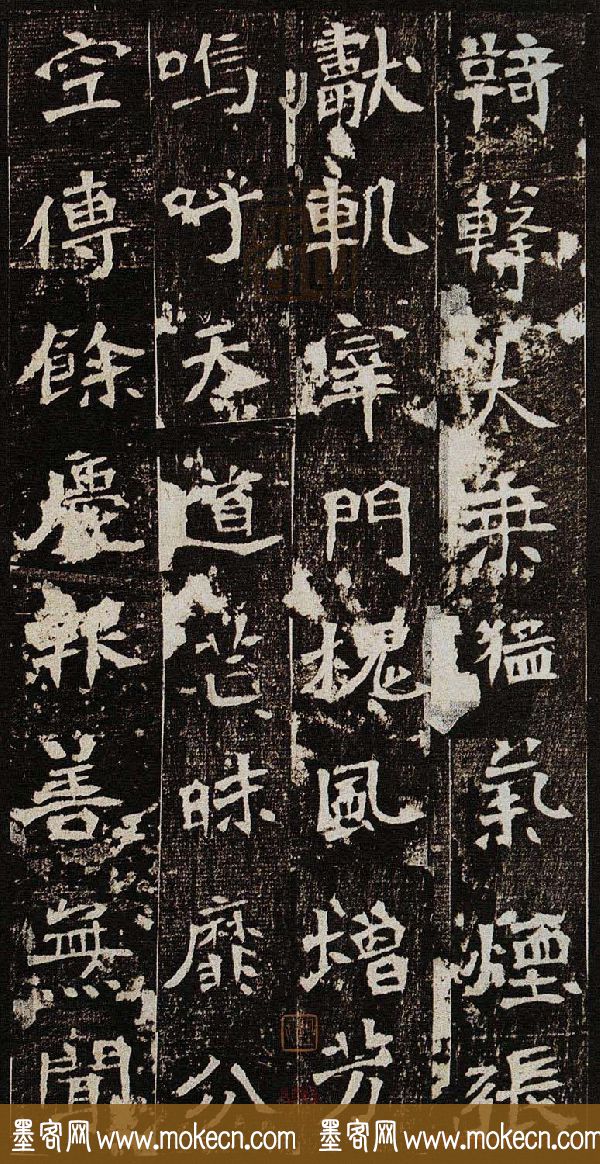 乘猛氣煙張
軌宰門槐風增芳
嗚呼天道芒昧靡
空傳餘慶報善無聞
墨客网 www.mokecn.com 墨客网 www.mokecn.com